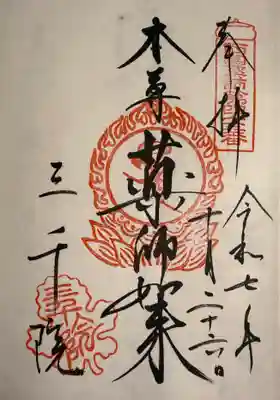 奉拝
令和七年
十月二十六日
本尊
薬師如来
三千院